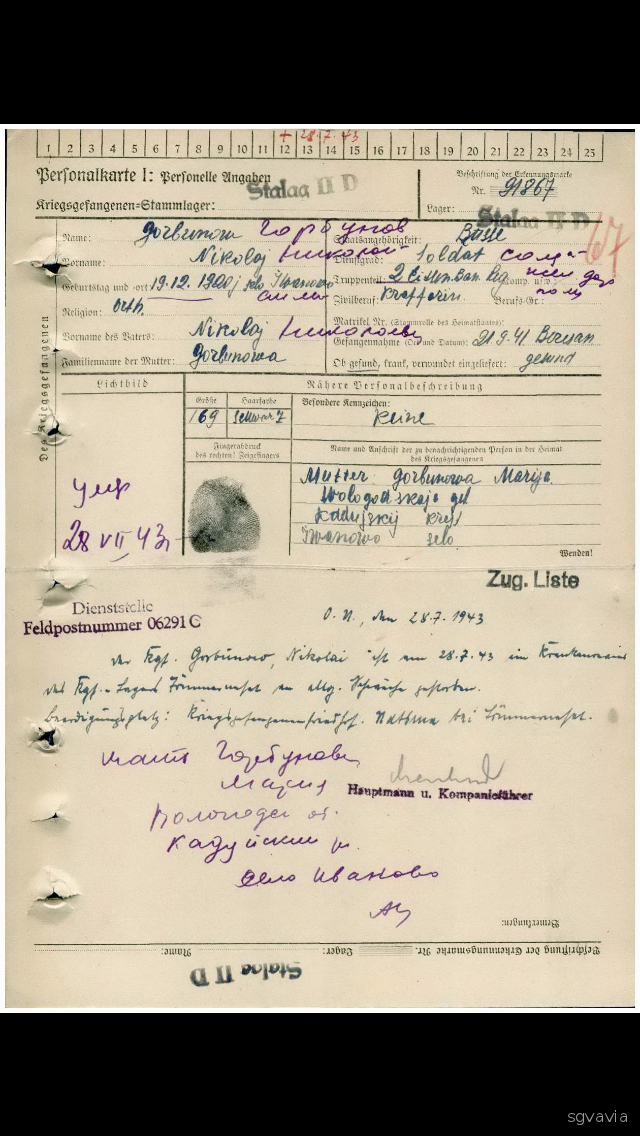 + 28.7.43
1 2 3 4 5 6 7 8 9 10 11 12 13 14 15 16 17 18 19 20 21 22 23 24 25
Personalkarte I: Personelle Angaben
Beschriftung der Erkennungsmarke
Stalag II D
Nr. 91867
Kriegsgefangenen-Stammlager:
Lager: Stalag II D
Des Kriegsgefangenen
Name: Gorbunow Горбунов
Staatsangehörigkeit:
Vorname: Nikolaj Николай
Dienstgrad: Soldat
Geburtstag und -ort: 19.12.1900
Truppenteil:
Religion: Orth.
Zivilberuf:
Berufs-Gr.:
Vorname des Vaters: Nikolaj Николаевич
Matrikel Nr. (Stammrolle des Heimatstaates)
Gefangennahme (Ort und Datum): 21.9.41
Familienname der Mutter: Gorbunowa
Ob gesund, krank, verwundet eingeliefert: gesund
67
Lichtbild
Nähere Personalbeschreibung
Größe
Haarfarbe
Besondere Kennzeichen:
169
schwarz
Keine
Fingerabdruck
des rechten! Zeigefingers
Name und Anschrift der zu benachrichtigenden Person in der Heimat
des Kriegsgefangenen
Mutter: Gorbunowa Marija
Wologodskaja
Kadujskij
Iwanowo selo
умер
28 VII 43г
Wenden!
Zug. Liste
Dienststelle
Feldpostnummer 06291 C
O.U., den 28.7.1943
der Kgf. Gorbunow, Nikolai ist am 28.7.43 im Krankenrevier
des Kgf.-Lagers an allg. Schwäche gestorben.
Beerdigungsplatz: Kriegsgefangenenfriedhof bei
мать Горбунова
Мария
Hauptmann u. Kompanieführer
Вологодск об.
Кадуйский р.
село Иваново
Bemerkungen:
Beschriftung der Erkennungsmarke Nr.
Lager:
Name:
Stalag II D
sgvavia